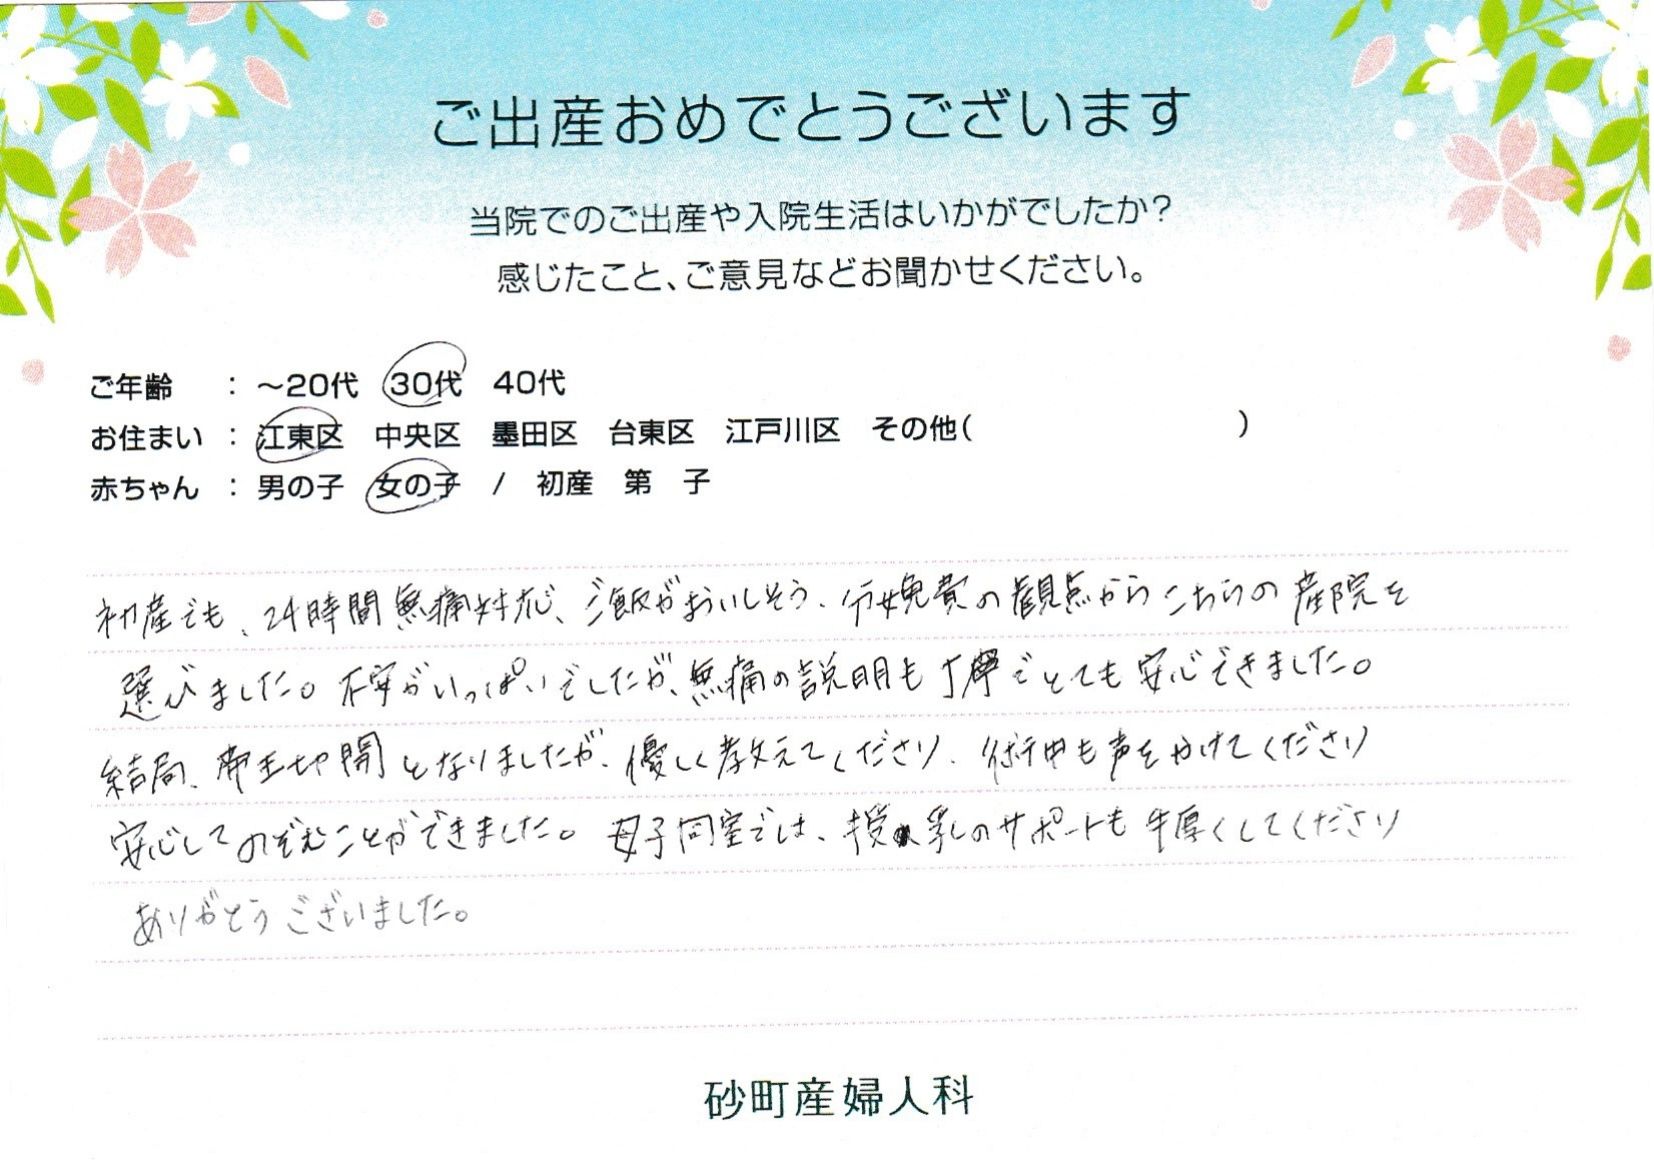 ご出産おめでとうございます
当院でのご出産や入院生活はいかがでしたか?
感じたこと、ご意見などお聞かせください。
ご年齢 : ~20代 30代 40代
お住まい : 江東区 中央区 墨田区 台東区 江戸川区 その他( )
赤ちゃん : 男の子 女の子 / 初産 第 子
初産でも、24時間無痛対応、ご飯がおいしそう、分娩費の観点からこちらの産院を
選びました。不安がいっぱいでしたが、無痛の説明も丁寧でとても安心できました。
結局、帝王切開となりましたが、優しく教えてくださり、術中も声をかけてくださり
安心してのぞむことができました。母子同室では、授乳のサポートも手厚くしてくださり
ありがとうございました。
砂町産婦人科